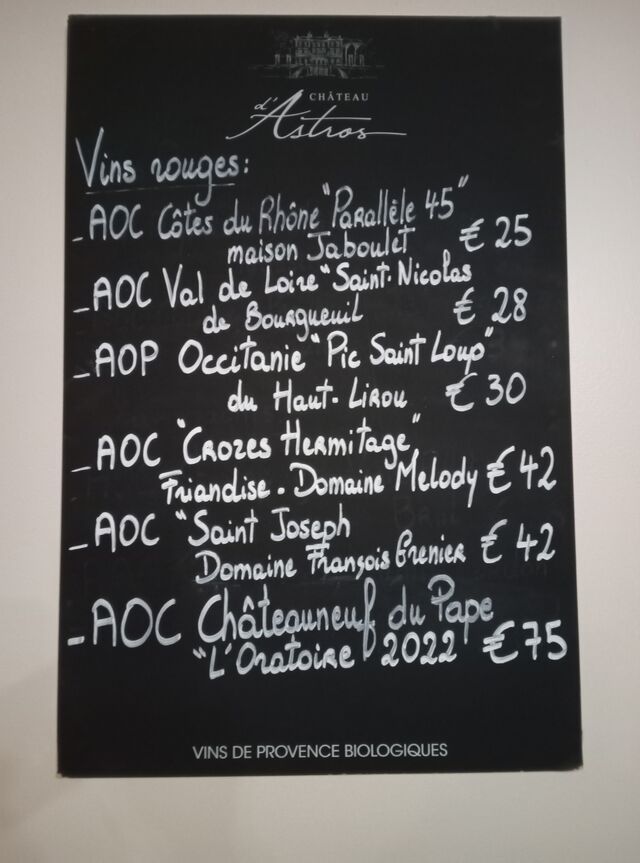 CHÂTEAU
d'Astros
Vins rouges:
- AOC Côtes du Rhône "Parallèle 45"
maison Jaboulet € 25
- AOC Val de Loire "Saint-Nicolas
de Bourgueuil € 28
- AOP Occitanie "Pic Saint Loup"
du Haut-Lirou € 30
- AOC "Crozes Hermitage"
Friandise. Domaine Melody € 42
- AOC "Saint Joseph
Domaine François Grenier € 42
- AOC Châteauneuf du Pape
"L'Oratoire 2022" € 75
VINS DE PROVENCE BIOLOGIQUES